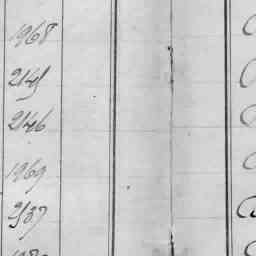 1968
2145
2146
1969
2137